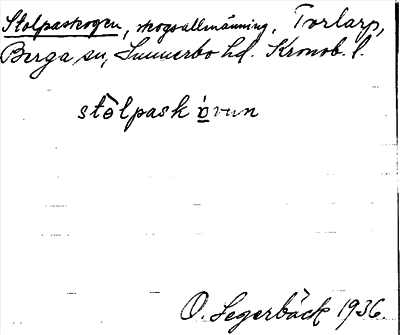 Stolpaskogen, skogsallmänning, Torlarp,
Berga sn, Sunnerbo hd. Kronob. l.
O. Segerbäck 1936.